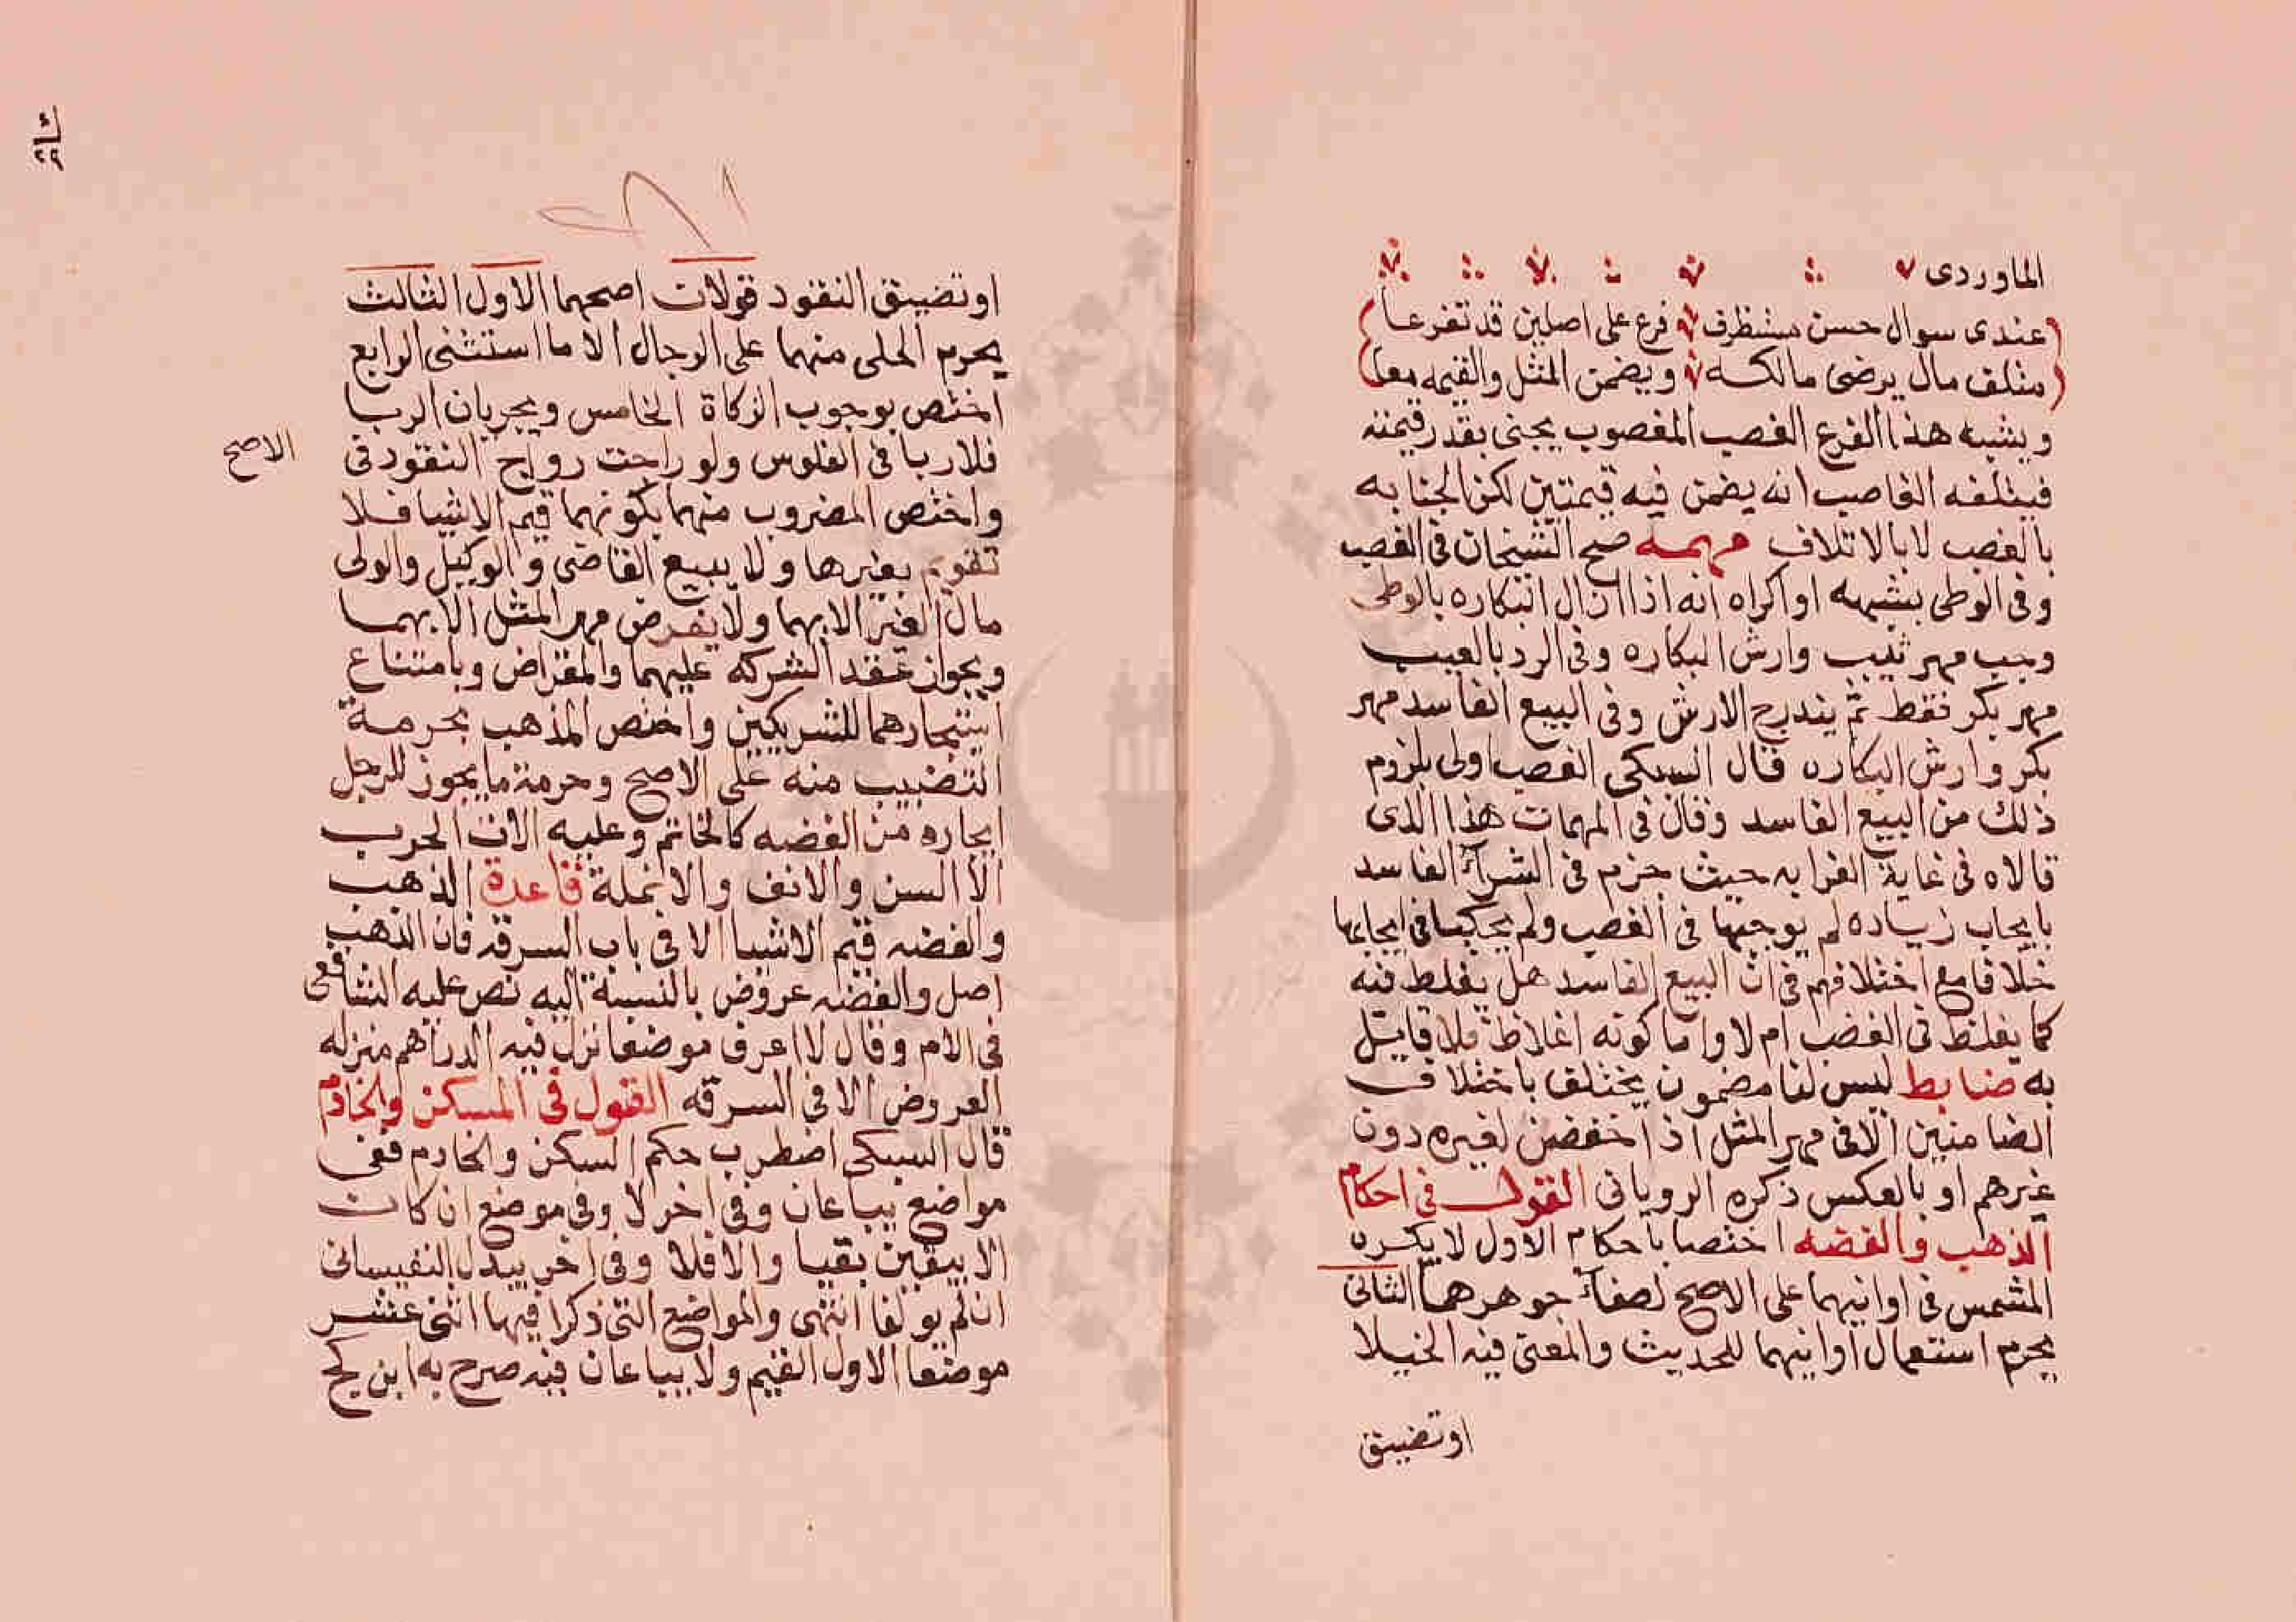 الماوردى
عندى سوال حسن مستظرف فرع على اصلين قد تفرعا
متلف مال يرضى مالكه ويضمن المثل والقيمه معا
ويشبه هذا الفرع الغصب المغصوب يجنى بقدر قيمته
فيتلفه الغاصب انه يضمن فيه قيمتين لكن الجنايه
بالغصب لا بالاتلاف مهمه صحح الشيخان فى الغصب
وفى الوطى بشبهه او اكراه انه اذا ازال البكاره بالوطى
وجب مهر ثيب وارش البكاره وفى الرد بالعيب
مهر بكر فقط ثم يندرج الارش وفى البيع الفاسد مهر
بكر وارش البكاره قال السبكى الغصب اولى بلزوم
ذلك من البيع الفاسد وقال فى المهمات هذا الذى
قالاه فى غاية الغرابه حيث جزم فى الشرآء الفاسد
بايجاب زياده لم يوجبها فى الغصب ولم يحكيا فى ايجابها
خلافا مع اختلافهم فى ان البيع الفاسد هل يغلظ فيه
كما يغلظ فى الغصب ام لا واما كونه اغلاظ فلا قايل
به ضابط ليس لنا مضمون يختلف باختلاف
الضامنين الا فى مهر المثل اذا خفضن لغيره دون
غيرهم او بالعكس ذكره الرويانى القول فى احكام
الذهب والفضه اختصا باحكام الاول لا يكره
المشمس فى اوانيهما على الاصح لصفآء جوهرهما الثانى
يحرم استعمال اوانيهما للحديث والمعنى فيه الخيلا
او تضييق
او تضييق النقود قولان اصحهما الاول الثالث
يحرم الحلى منهما على الرجال الا ما استثنى الرابع
اختص بوجوب الزكاة الخامس وبجريان الربا
فلا ربا فى الفلوس ولو راجت رواج النقود فى
الاصح
واختص المضروب منهما بكونهما قيم الاشيا فلا
تقوم بغيرها ولا يبيع القاضى والوكيل والولى
مال الغير الا بهما ولا يفرض مهر المثل الا بهما
وبجواز عقد الشركه عليهما والمقراض وبامتناع
استيجارهما للشريكين واختص المذهب بحرمة
التضبيب منه على الاصح وحرمة ما يجوز للرجل
ايجاره من الفضه كالخاتم وعليه الات الحرب
الا السن والانف والانملة قاعدة الذهب
والفضه قيم الاشيا الا فى باب السرقه فان الذهب
اصل والفضه عروض بالنسبة اليه نص عليه الشافعى
فى الام وقال لا اعرف موضعا نزل فيه الدراهم منزله
العروض الا فى السرقه القول فى المسكن والخادم
قال السبكى اضطرب حكم السكن والخادم ففى
مواضع يباعان وفى اخر لا وفى موضع ان كانت
الا يبيقين بقيا والا فلا وفى اخر يبدل النفيسانى
ان لم يولفا انتهى والمواضع التى ذكرا فيها اثنى عشر
موضعا الاول القيم ولا يباعان فيه صرح به ابن كج